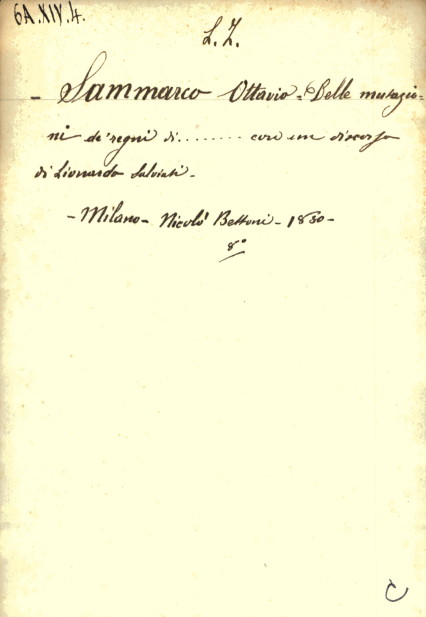 6A.XIV.4.
L. Z.
- Sammarco Ottavio - Delle mutazio-
ni de' regni di ........ con un discorso
di Lionardo Salviati -
- Milano - Nicolò Bettoni - 1830 -
8°
C